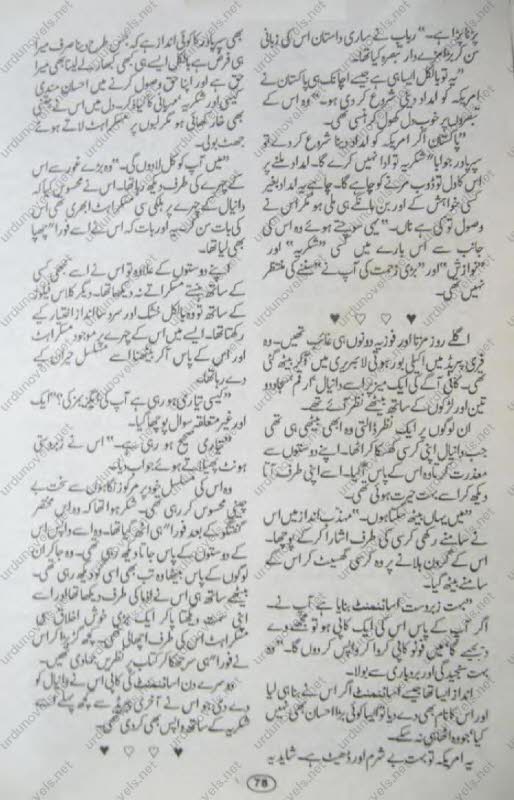 پڑنا پڑا ہے۔" رباب نے ساری داستان اس کی زبانی
سن کر بڑا مزے دار تبصرہ کیا تھا۔
"یہ تو بالکل ایسا ہی ہے جیسے اچانک ہی پاکستان نے
امریکہ کو امداد دینی شروع کر دی ہو۔" وہ اس کے
تبصروں پر خوب دل کھول کر ہنسی تھی۔
"پاکستان اگر امریکہ کو امداد دینا شروع کر دے تو
سپر پاور جواباً شکریہ تو ادا نہیں کرے گا۔ امداد ملنے پر
اس کا دل تو ڈوب مرنے کو چاہے گا۔ چاہے یہ امداد بغیر
کسی خواہش کے اور بن مانگے ہی ملی ہو مگر اس نے
وصول تو کی ہے ناں۔" یہی سوچتے ہوئے وہ اس کی
جانب سے اس بارے میں کسی "شکریہ" اور
"نوازش" اور "بڑی زحمت کی آپ نے" سننے کی منتظر
نہیں تھی۔
♥ ♡ ♡ ♥
اگلے روز مرتا اور فوزیہ دونوں ہی غائب تھیں۔ وہ
فری پیریڈ میں اکیلی بور ہوتی لائبریری میں آ کر بیٹھ گئی
تھی۔ کافی آگے کی ایک میز پر اسے دانیال، ارقم، سجاد دو
تین اور لڑکوں کے ساتھ بیٹھے نظر آئے تھے۔
ان لوگوں پر ایک نظر ڈالتی وہ ابھی بیٹھی ہی تھی
جب دانیال اپنی کرسی کھسکا کر اٹھا۔ اپنے دوستوں سے
معذرت کرتا وہ اس کے پاس آ گیا۔ اسے اپنی طرف آتا
دیکھ کر اسے بہت حیرت ہوئی تھی۔
"میں یہاں بیٹھ سکتا ہوں۔" مہذب انداز میں اس
نے سامنے رکھی کرسی کی طرف اشارا کر کے پوچھا۔
اس کے گردن ہلانے پر وہ کرسی گھسیٹ کر اس کے
سامنے بیٹھ گیا۔
"بہت زبردست اسائنمنٹ بنایا ہے آپ نے۔
اگر آپ کے پاس اس کی ایک کاپی ہو تو مجھے دے
دیجیے گا میں فوٹو کاپی کروا کر واپس کر دوں گا۔" وہ
بہت سنجیدگی اور بردباری سے بولا۔
انداز ایسا تھا جیسے اسائنمنٹ اگر اس نے بنا ہی لیا
اور اس کا نام بھی دے دیا تو ایسا کوئی بڑا احسان بھی نہیں
کیا جو وہ اٹھا ہی نہ سکے۔
یہ امریکہ تو بہت بے شرم اور ڈھیٹ ہے۔ شاید یہ
بھی سپر پاور کا کوئی انداز ہے کہ جس طرح دینا صرف میرا
ہی فرض ہے بالکل ایسے ہی کبھی کبھار لے لینا بھی میرا
حق ہے اور اپنا حق وصول کرنے میں احسان مندی
کیسی اور شکریہ مہربانی کا کیا ذکر۔ دل میں اس نے
بھی خار کھائی ہو مگر لبوں پر مسکراہٹ لاتے ہوئے
جھٹ بولی۔
"میں آپ کو کل لا دوں گی۔" وہ بڑے غور سے اس
کے چہرے کی طرف دیکھ رہا تھا۔ اس نے محسوس کیا کہ
دانیال کے چہرے پر ہلکی سی مسکراہٹ ابھری تھی اس
کی بات سن کر۔ یہ اور بات کہ اس نے اسے فوراً چھپا
بھی لیا تھا۔
اپنے دوستوں کے علاوہ تو اس نے اسے کبھی کسی
کے ساتھ ہنستے مسکراتے نہ دیکھا تھا۔ دیگر کلاس فیلوز
کے ساتھ تو وہ بالکل خشک اور سرد سا انداز اختیار کیے
رکھتا تھا۔ ایسے میں اس کے چہرے پر موجود مسکراہٹ
اور اس کے پاس آ کر بیٹھنا اسے مسلسل حیران کیے
دے رہا تھا۔
"کیسی تیاری ہو رہی ہے آپ کی ایگزیمز کی؟" ایک
اور غیر متعلقہ سوال پوچھا گیا۔
"تیاری صحیح ہو رہی ہے۔" اس نے زبردستی
ہونٹ پھیلاتے ہوئے جواب دیا۔
وہ اس کی مسلسل خود پر مرکوز نگاہوں سے سخت بے
چینی محسوس کر رہی تھی۔ شکر ہوا تھا کہ وہ اس مختصر
گفتگو کے بعد فوراً ہی اٹھ گیا تھا۔ وہ اسے واپس اس
کے دوستوں کے پاس جاتا دیکھ رہی تھی۔ وہ جا کر ان
لوگوں کے پاس بیٹھا وہ تب بھی اسی کو دیکھ رہی تھی۔
بیٹھنے کے ساتھ ہی اس نے انزا کی طرف دیکھا تھا اور اسے
اپنی سمت دیکھتا پا کر ایک بڑی خوش اخلاق سی
مسکراہٹ اس کی طرف اچھالی تھی۔ کچھ گڑبڑا کر اس
نے فوراً ہی سر جھکا کر کتاب پر نظریں جما دی تھیں۔
دوسرے دن اسائنمنٹ کی کاپی اس نے دانیال کو
دے دی جو اس نے آخری پیریڈ سے کچھ پہلے فوراً
شکریہ کے ساتھ واپس بھی کر دی تھی۔
♥ ♡ ♡ ♥
78
urdunovels.net